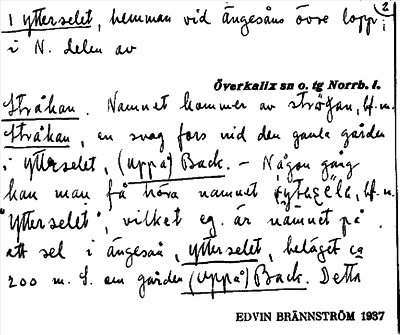 2
1 Ytterselet, hemman vid Ängesåns övre lopp i
i N. delen av
Överkalix sn o. tg Norrb. l.
Stråkan. Namnet kommer av
Stråkan, en svag fors vid den gamla gården
i Ytterselet, (Uppå) Back. – Någon gång
kan man få höra namnet
"Ytterselet", vilket eg. är namnet på
ett sel i Ängesån, Ytterselet, beläget ca
200 m. S. om gården (Uppå) Back. Detta
EDVIN BRÄNNSTRÖM 1937